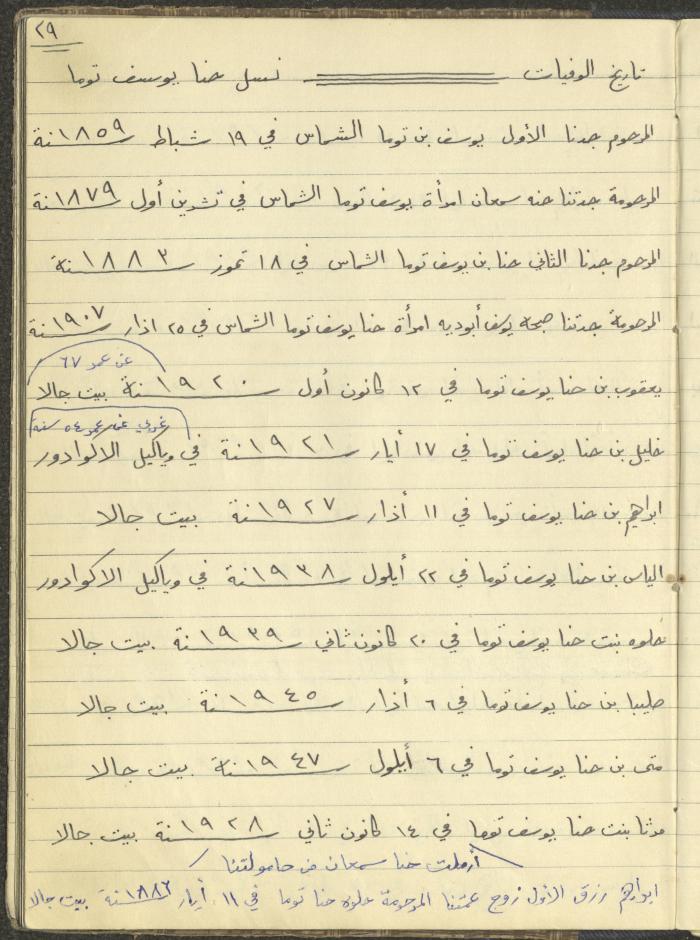 ٢٩
تاريخ الوفيات نسل حنا يوسف توما
المرحوم جدنا الأول يوسف بن توما الشماس في ١٩ شباط سنة ١٨٥٩
المرحومة جدتنا حنه سمعان امرأة يوسف توما الشماس في تشرين أول سنة ١٨٧٩
المرحوم جدنا الثاني حنا بن يوسف توما الشماس في ١٨ تموز سنة ١٨٨٣
المرحومة جدتنا صبحه يوسف أبوديه امرأة حنا يوسف توما الشماس في ٢٥ اذار سنة ١٩٠٧
عن عمر ٦٧
يعقوب بن حنا يوسف توما في ١٢ كانون أول سنة ١٩٢٠ بيت جالا
عن عمر ٥٤ سنة
خليل بن حنا يوسف توما في ١٧ أيار سنة ١٩٢١ في وياكيل الاكوادور
ابراهيم بن حنا يوسف توما في ١١ أذار سنة ١٩٢٧ بيت جالا
الياس بن حنا يوسف توما في ٢٢ أيلول سنة ١٩٣٨ في وياكيل الاكوادور
حلوه بنت حنا يوسف توما في ٢٠ كانون ثاني سنة ١٩٣٩ بيت جالا
صليبا بن حنا يوسف توما في ٦ أذار سنة ١٩٤٥ بيت جالا
متى بن حنا يوسف توما في ٦ أيلول سنة ١٩٤٧ بيت جالا
مرثا بنت حنا يوسف توما في ١٤ كانون ثاني سنة ١٩٢٨ بيت جالا
أرملت حنا سمعان من حامولتنا
ابراهيم رزق الاول زوج عمتنا المرحومة حلوه حنا توما في ١١ أيار سنة ١٨٨٦ بيت جالا